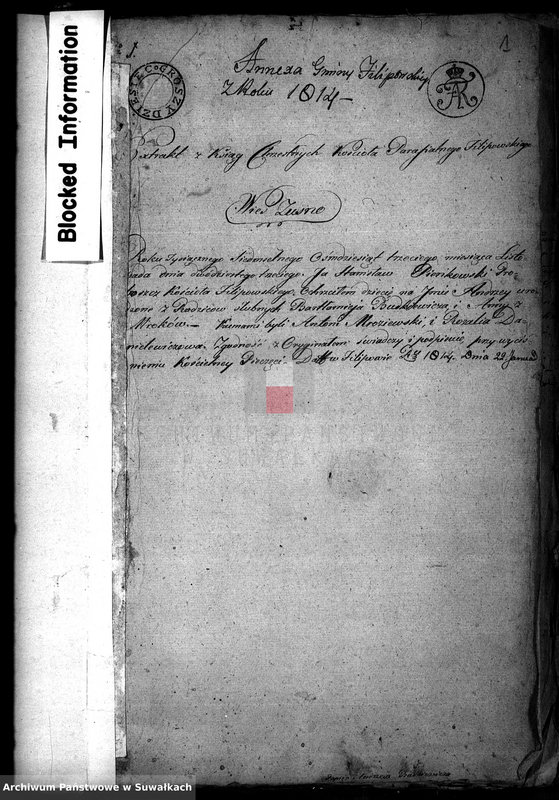 1
Annexa Gminy Filipowskiey
Z Roku 1814 –
DZIESIĘC GROSZY
Blocked Information
Extrakt z Ksiąg Chrzestnych Kościoła Parafialnego Filipowskiego
Wieś Zusno
Roku Tysiącznego Siedmsetnego Ośmdziesiąt trzeciego, miesiąca Listo
pada dnia dwudziestego trzeciego. Ja Stanisław Pro-
boszcz Kościoła Filipowskiego, Ochrzciłem dziecię na Imie Andrzey uro
dzone z Rodziców ślubnych Bartłomieja Budkiewicza, i Anny z
Mroków. – Kumami byli Antoni Mroziewski i Rozalia Da-
nielewiczowa. Zgodność z Oryginałem świadczy i podpisuie przy wycis
nieniu Kościelney Pieczęci. Datt w Filipowie 1814. Dnia 29 Januarii
Archiwum Państwowe w Suwałkach